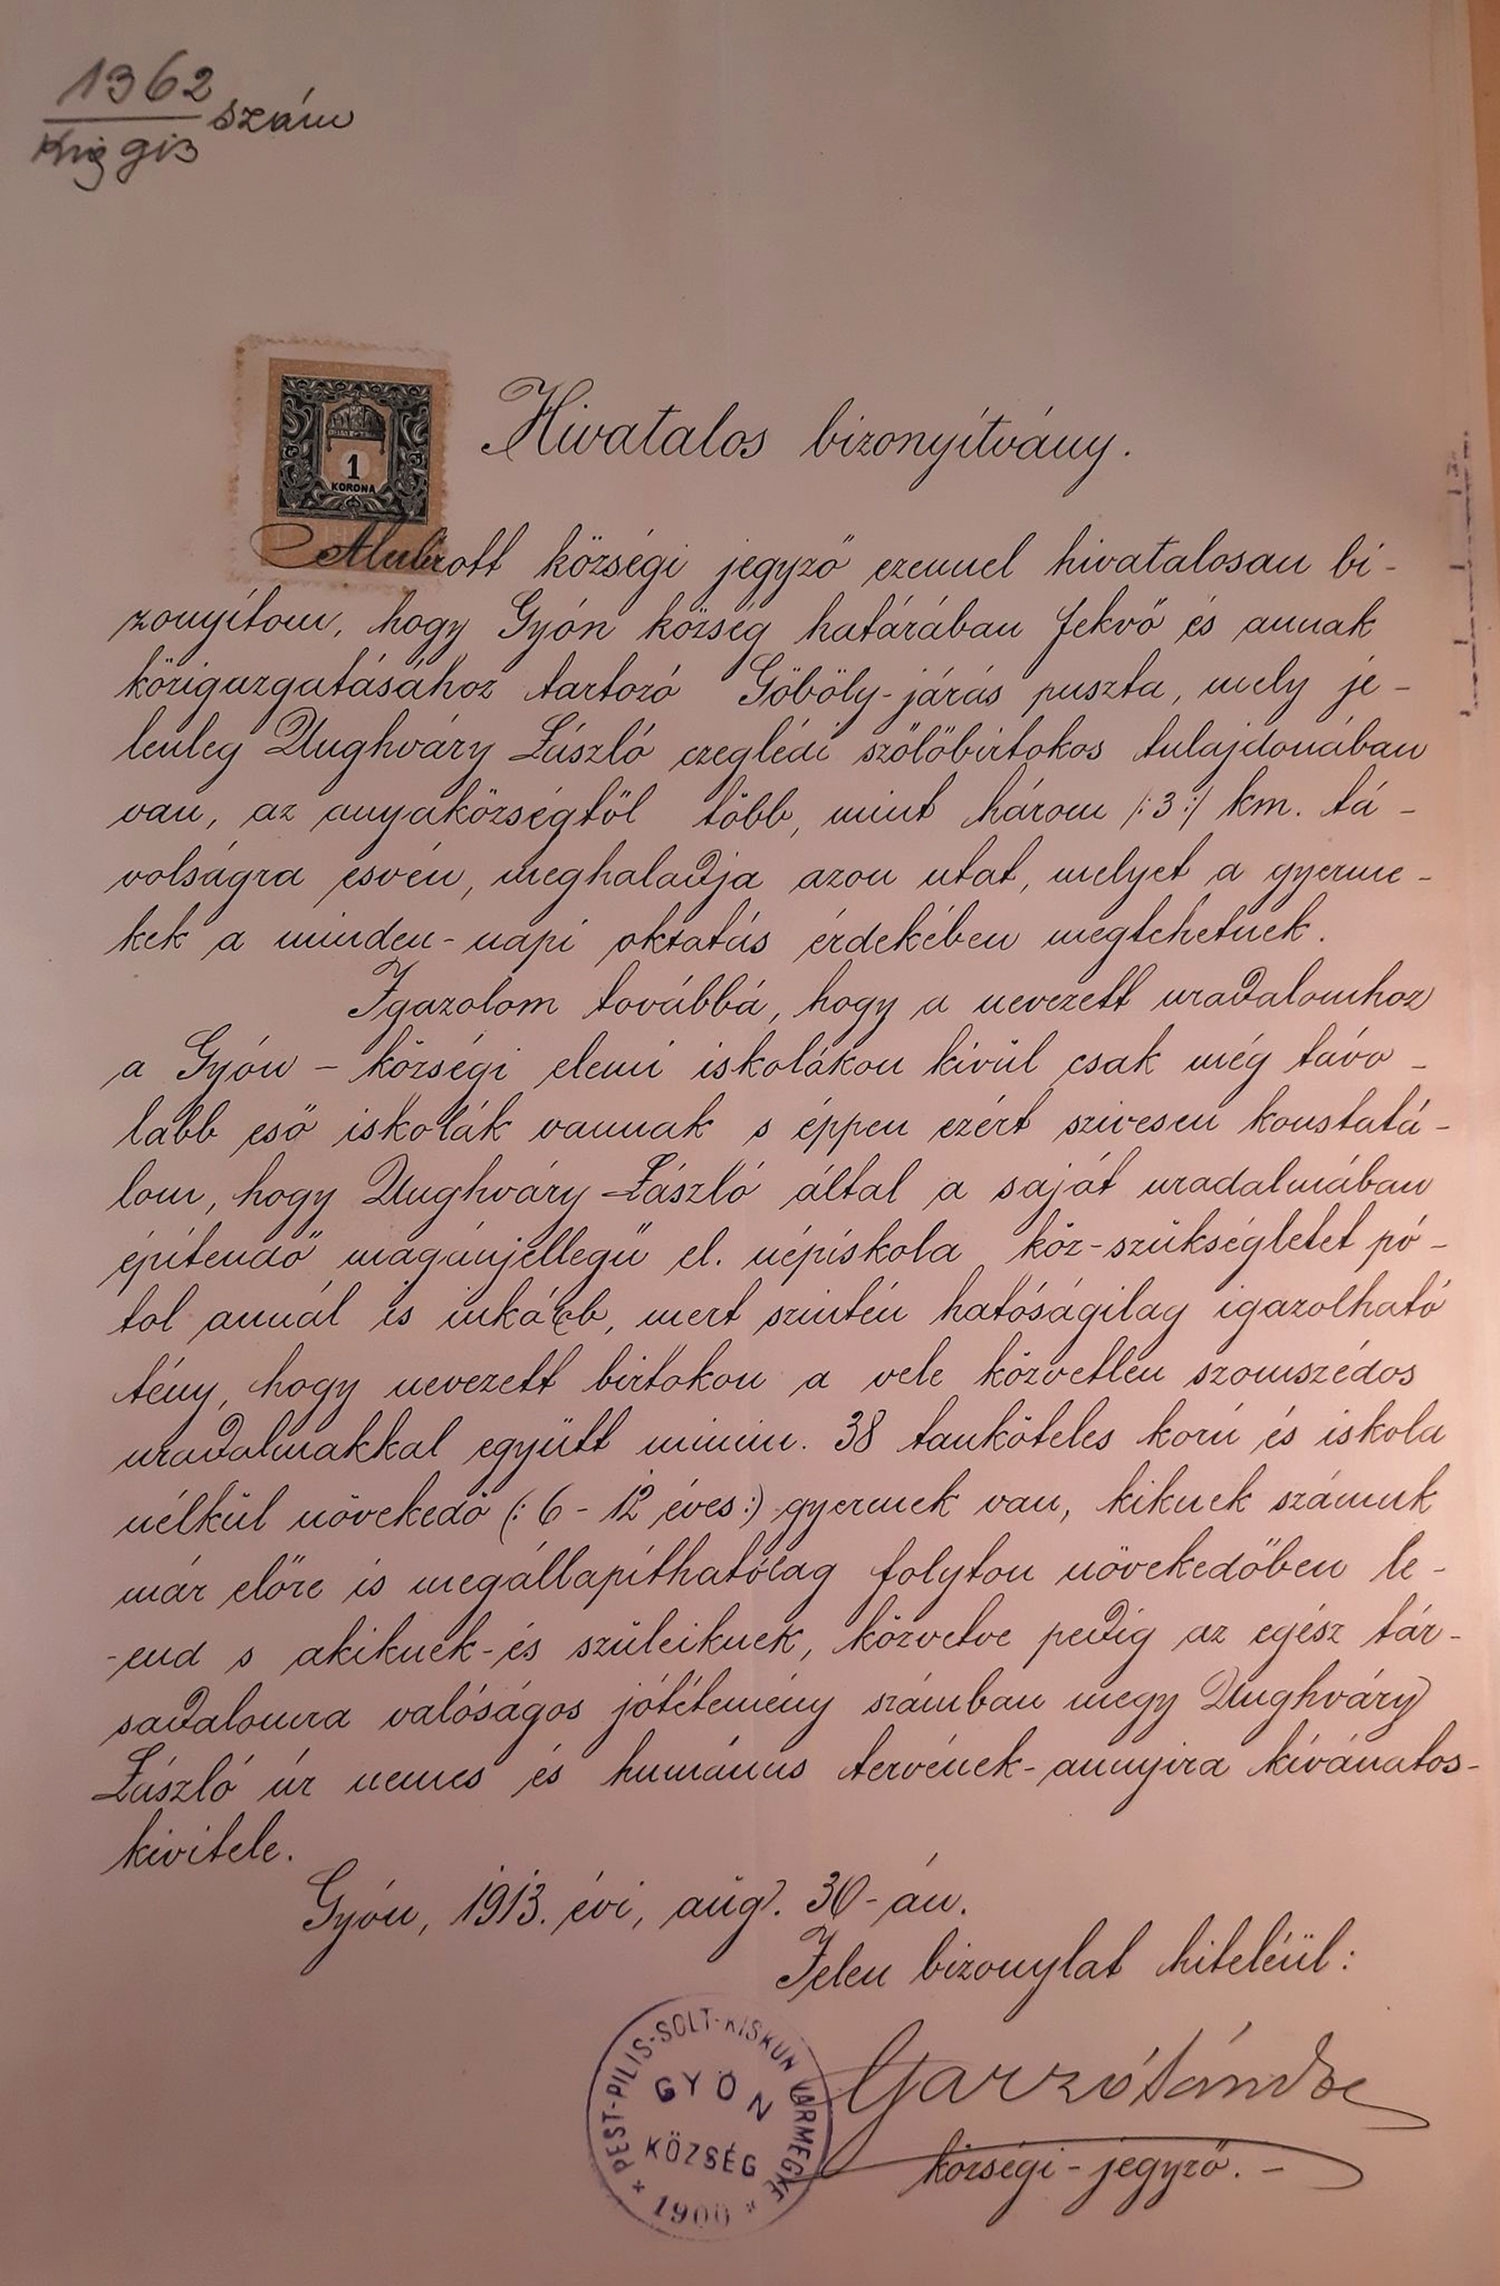 1362 szám
kig 913
1
KORONA
Hivatalos bizonyítvány.
Alulirott községi jegyző ezennel hivatalosan bi-
zonyítom, hogy Gyón község határában fekvő és annak
közigazgatásához tartozó Göböly-járás puszta, mely je-
lenleg Unghváry László czeglédi szőlőbirtokos tulajdonában
van, az anyaközségtől több, mint három /:3:/ km. tá-
volságra esvén, meghaladja azon utat, melyet a gyerme-
kek a minden-napi oktatás érdekében megtehetnek.
Igazolom továbbá, hogy a nevezett uradalomhoz
a Gyón - községi elemi iskolákon kívül csak még távo-
labb eső iskolák vannak s éppen ezért szivesen konstatá-
lom, hogy Unghváry László által a saját uradalmában
építendő magánjellegű el. népiskola köz-szükségletet pó-
tol annál is inkább, mert szintén hatóságilag igazolható
tény, hogy nevezett birtokon a vele közvetlen szomszédos
uradalmakkal együtt minim. 38 tanköteles korú és iskola
nélkül növekedő (: 6 - 12 éves :) gyermek van, kiknek számuk
már előre is megállapíthatólag folyton növekedőben le-
-end s akiknek-és szüleiknek, közvetve pedig az egész tár-
sadalomra valóságos jótétemény számban megy Unghváry
László úr nemes és humánus tervének-annyira kívánatos-
kivitele.
Gyón, 1913. évi, aug. 30-án.
Jelen bizonylat hiteléül:
Garzó Sándor
községi-jegyző. -
PEST-PILIS-SOLT-KISKUN VÁRMEGYE
GYÓN
KÖZSÉG
* 1900 *